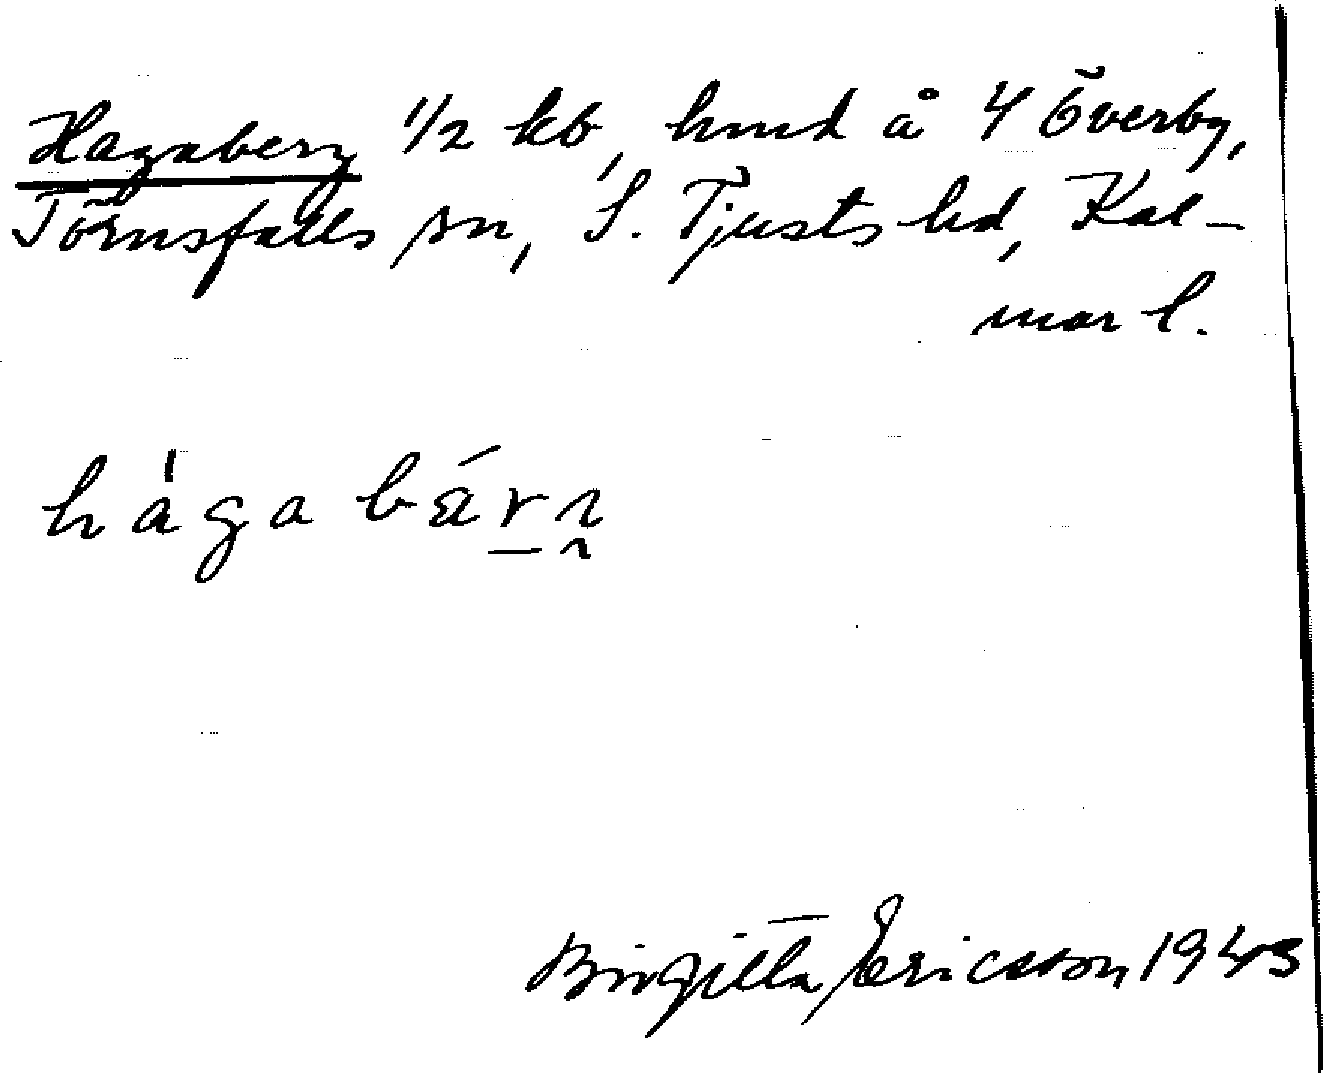 Hagaberg 1/2 kb, hmd å 4 Överby,
Törnsfalls sn, S. Tjusts hd, Kal-
mar l.
hágabárı
Birgitta Ericsson 1943